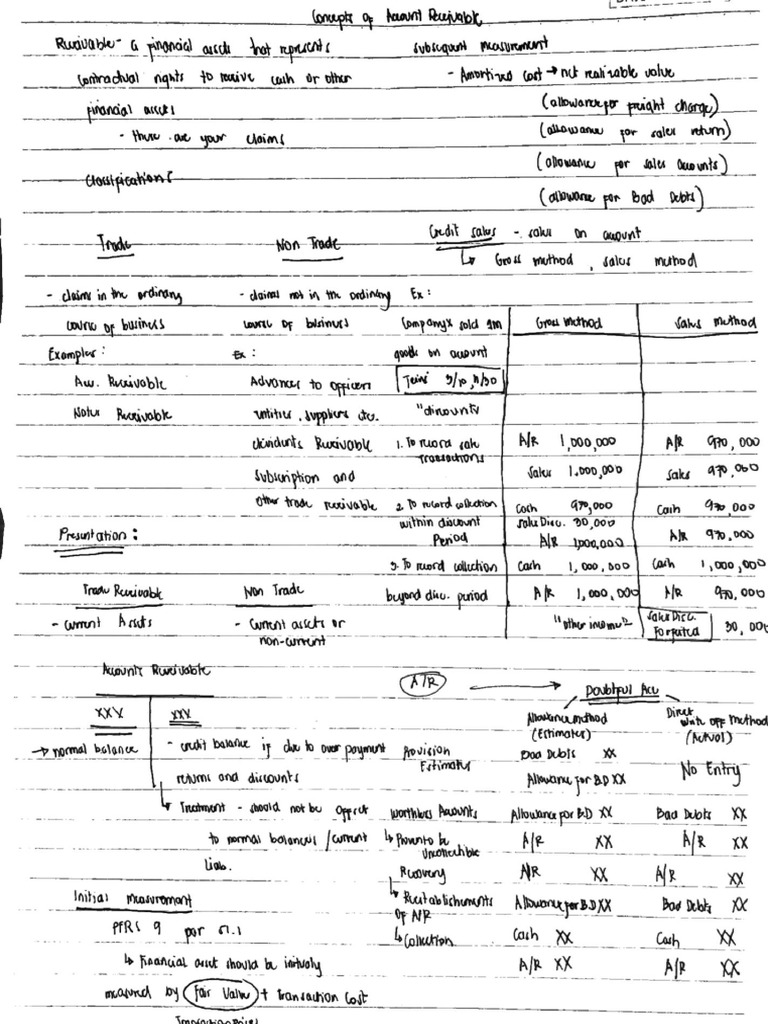 Concepts of Account Receivable
Receivable - a financial assets that represents
contractual rights to receive cash or other
financial assets
- these are your claims
Classifications
Trade
Non Trade
- claims in the ordinary
course of business
Examples:
Acc. Receivable
Notes Receivable
- claims not in the ordinary
course of business
Ex:
Advances to officers
entities, suppliers etc.
dividents Receivable
subscription and
other trade receivable
Presentation:
Trade Receivable
- current Assets
Non Trade
- current assets or
non-current
Accounts Receivable
XXX
XXX
→ normal balance
- credit balance if due to over payment
returns and discounts
↳ Treatment - should not be offset
to normal balances / current
liab.
Initial measurement
PFRS 9 par 5.1.1
↳ Financial asset should be initialy
measured by Fair Value + Transaction Cost
Transaction Price
subsequent measurement
- Amortized cost → net realizable value
(allowance for freight charge)
(allowance for sales return)
(allowance for sales accounts)
(allowance for Bad Debts)
Credit sales - sales on account
↳ Gross method, sales method
Ex:
Company x sold 1m
goods on account
Terms 3/10, n/30
"discounts
Gross Method
Sales Method
1. To record sale
transactions
A/R 1,000,000
Sales 1,000,000
A/R 970,000
Sales 970,000
2. To record collection
within discount
Period
Cash 970,000
Sales Disc. 30,000
A/R 1,000,000
Cash 970,000
A/R 970,000
3. To record collection
beyond disc. period
Cash 1,000,000
A/R 1,000,000
Cash 1,000,000
A/R 970,000
"other income"
Sales Disc.
Forfeited 30,000
A/R
Doubtful Acc
Allowance method
(Estimates)
Direct
Write off Method
(Actual)
Provision
Estimates
Bad Debts XX
Allowance for B.D XX
No Entry
Worthless Accounts
↳ Proven to be
Uncollectible
Allowance for B.D XX
A/R XX
Bad Debts XX
A/R XX
Recovery
↳ Reestablishments
of A/R
A/R XX
Allowance for B.D XX
A/R XX
Bad Debts XX
↳ Collection
Cash XX
A/R XX
Cash XX
A/R XX